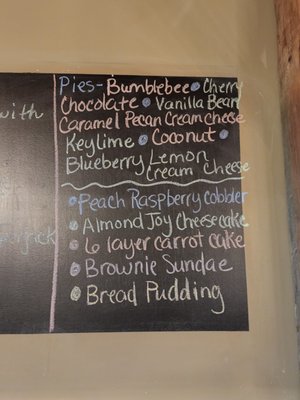 with
Pies- Bumblebee • Cherry
Chocolate • Vanilla Bean
Caramel Pecan Cream cheese
Keylime • Coconut •
Blueberry Lemon
Cream Cheese
• Peach Raspberry Cobbler
• Almond Joy Cheesecake
• 6 layer carrot cake
• Brownie Sundae
• Bread Pudding